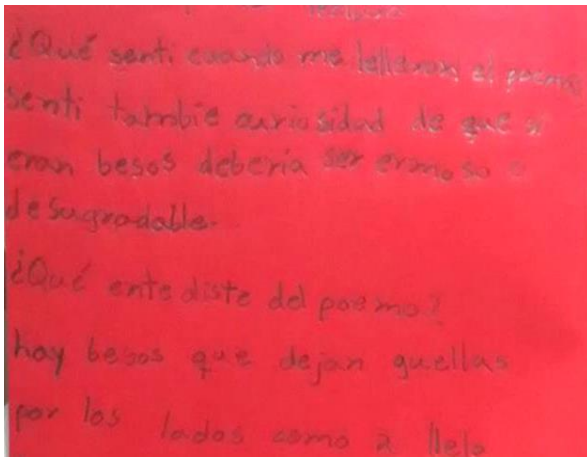 ¿Qué senti cuando me lelleron el poema
senti tambie curiosidad de que si
eran besos deberia ser ermoso o
desagradable.
¿Qué entediste del poema?
hay besos que dejan guellas
por los lados como a llelo